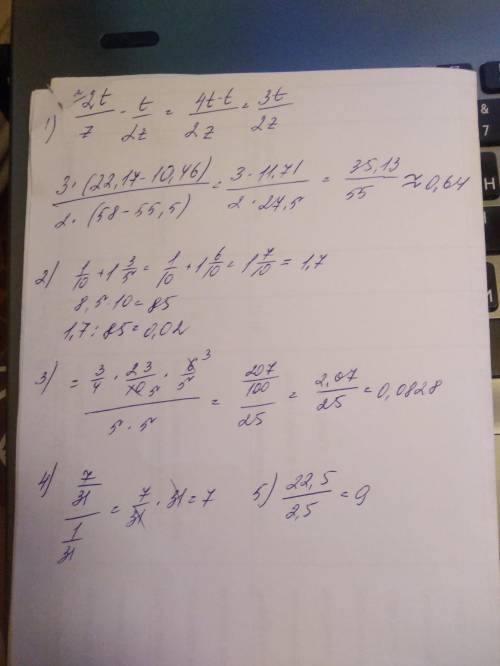 1) ²⁄ 2t/z - t/2z = 4t-t/2z = 3t/2z
3·(22,17-10,46)/2·(58-55,5) = 3·11,71/2·27,5 = 35,13/55 ≈ 0,64
2) 1/10 + 1 3/5 = 1/10 + 1 6/10 = 1 7/10 = 1,7
8,5·10=85
1,7:85=0,02
3) = 3/4 · 23/10 5 · 6/5 3 / 5·5 = 207/100 / 25 = 2,07/25 = 0,0828
4) 7/31 / 1/31 = 7/31 · 31 = 7 5) 22,5/2,5 = 9
&
7